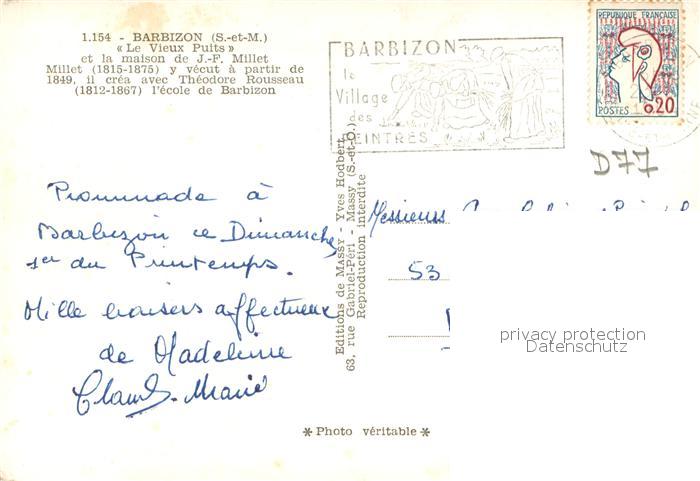 1.154 - BARBIZON (S.-et-M.)
« Le Vieux Puits »
et la maison de J.-F. Millet
Millet (1815-1875) y vécut à partir de
1849, il créa avec Théodore Rousseau
(1812-1867) l'école de Barbizon
BARBIZON
le
Village
des
PEINTRES
REPUBLIQUE FRANÇAISE
POSTES 0,20
D77
Promenade à
Barbizon ce Dimanche
1er du Printemps.
Mille baisers affectueux
de Madeleine
Claude. Marie
Editions de Massy - Yves Hodbert
63, rue Gabriel-Péri - Massy (S.-et-O.)
Reproduction interdite
Messieurs
53
privacy protection
Datenschutz
* Photo véritable *